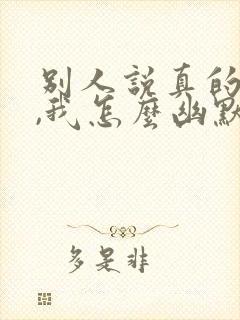 别人說真的
,我怎麼幽默
多是非